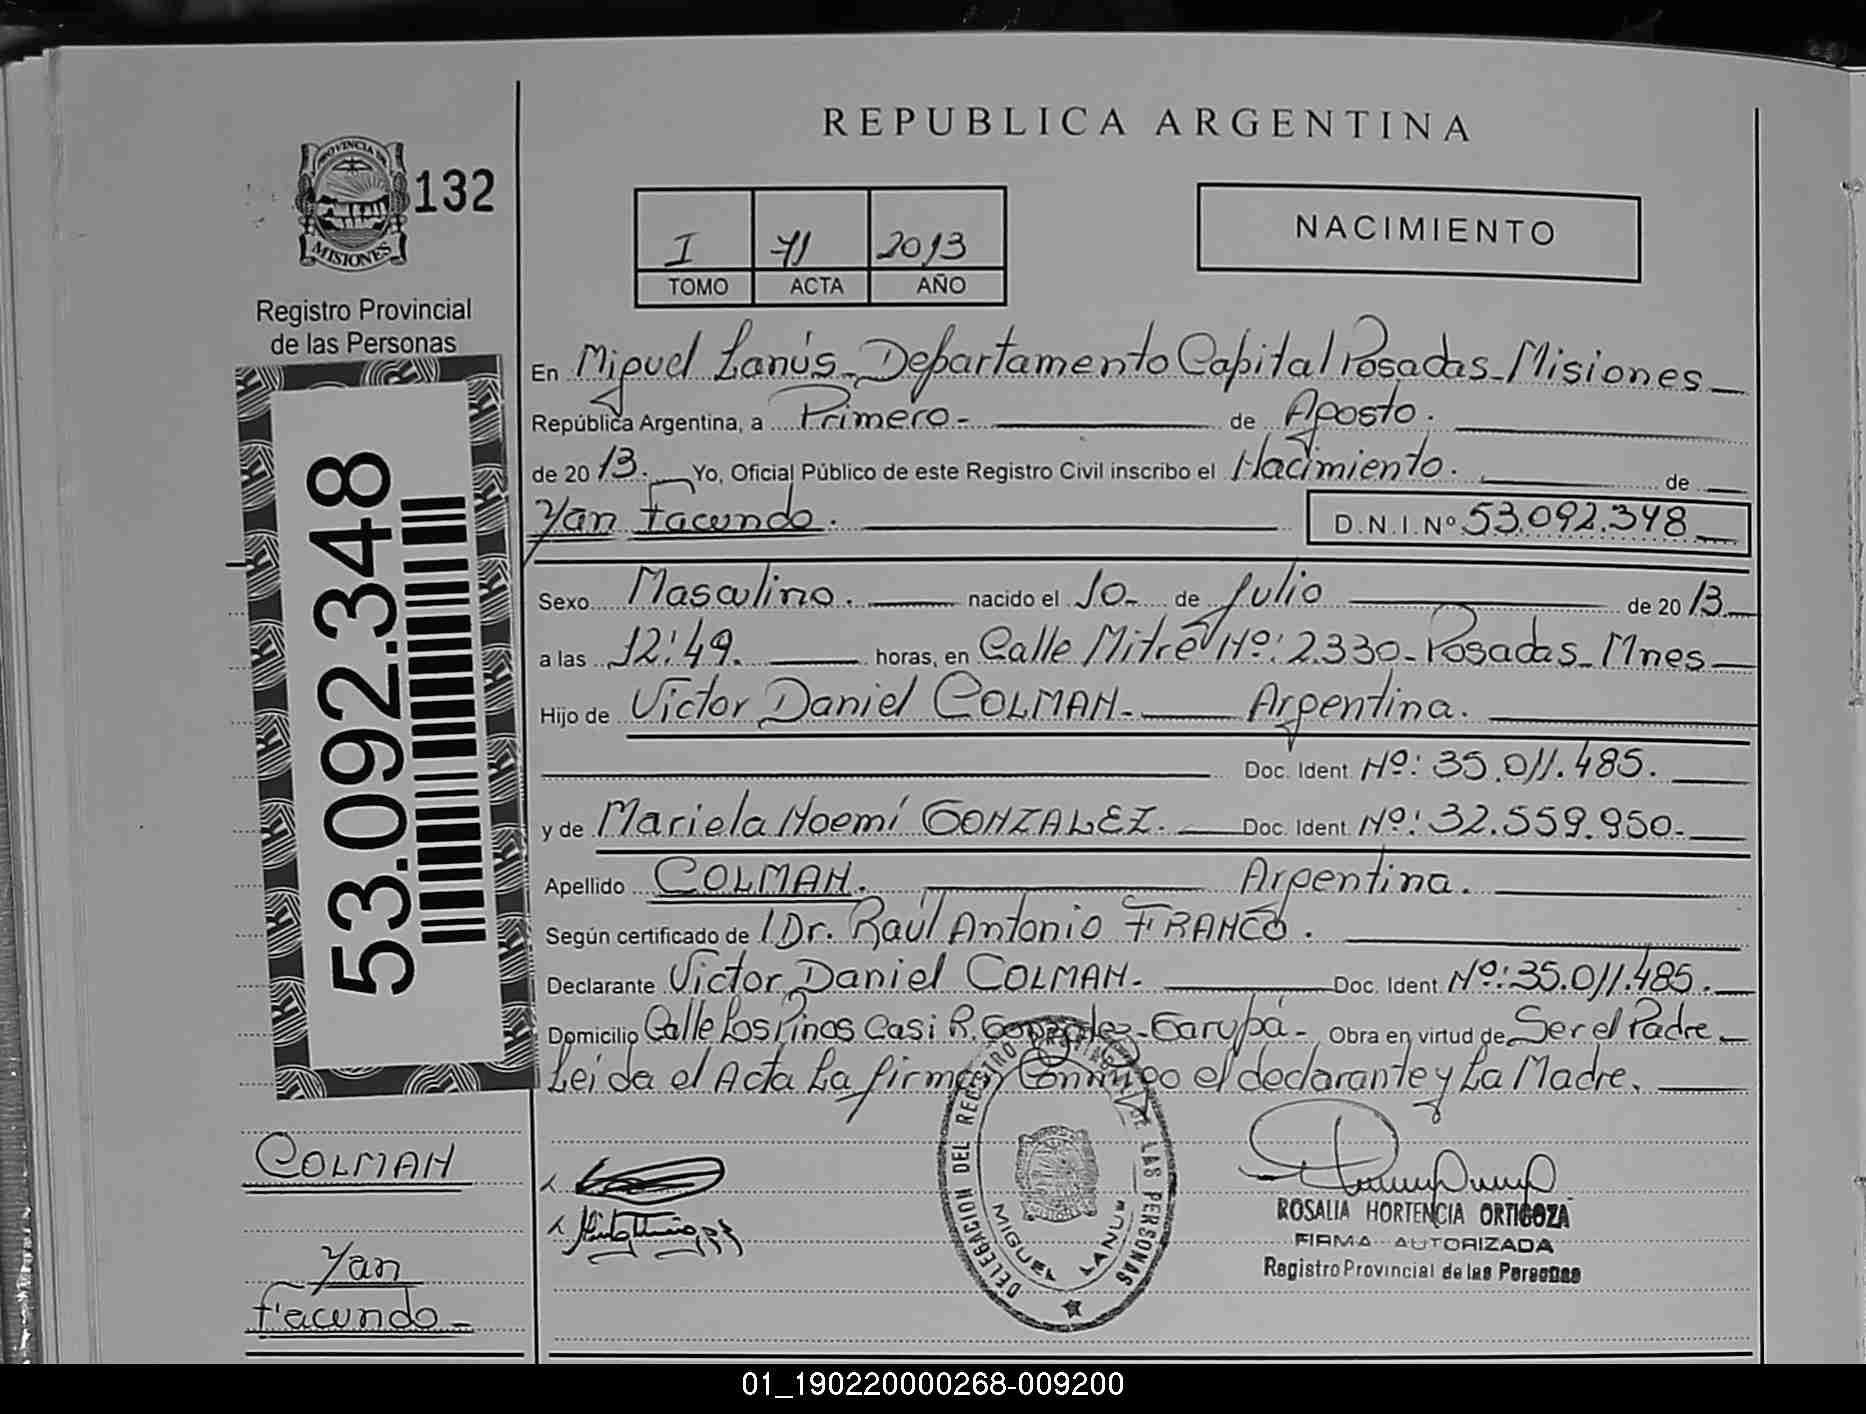 REPUBLICA ARGENTINA
PROVINCIA DE
MISIONES
132
Registro Provincial
de las Personas
I 71 2013
TOMO ACTA AÑO
NACIMIENTO
En Miguel Lanús - Departamento Capital Posadas - Misiones
República Argentina, a Primero - de Agosto.
de 20 13. Yo, Oficial Público de este Registro Civil inscribo el Nacimiento. de
Yan Facundo. D.N.I.Nº 53.092.348
Sexo Masculino. nacido el 10 - de Julio de 20 13
a las 12:49. horas, en Calle Mitre Nº: 2.330 - Posadas - Mnes
Hijo de Victor Daniel COLMAN - Argentina.
Doc. Ident. Nº: 35.011.485.
y de Mariela Noemí GONZALEZ. Doc. Ident. Nº: 32.559.950.
Apellido COLMAN. Argentina.
Según certificado de Dr. Raúl Antonio FRANCO.
Declarante Victor Daniel COLMAN - Doc. Ident. Nº: 35.011.485.
Domicilio Calle Los Pinos Casi R. Gonzalez - Garupá - Obra en virtud de Ser el Padre
Leida el Acta La firman Conmigo el declarante y La Madre.
53.092.348
COLMAN
Yan
Facundo -
DELEGACION DEL REGISTRO PROVINCIAL DE LAS PERSONAS
MIGUEL LANUS
ROSALIA HORTENCIA ORTIGOZA
FIRMA AUTORIZADA
Registro Provincial de las Personas
01_190220000268-009200